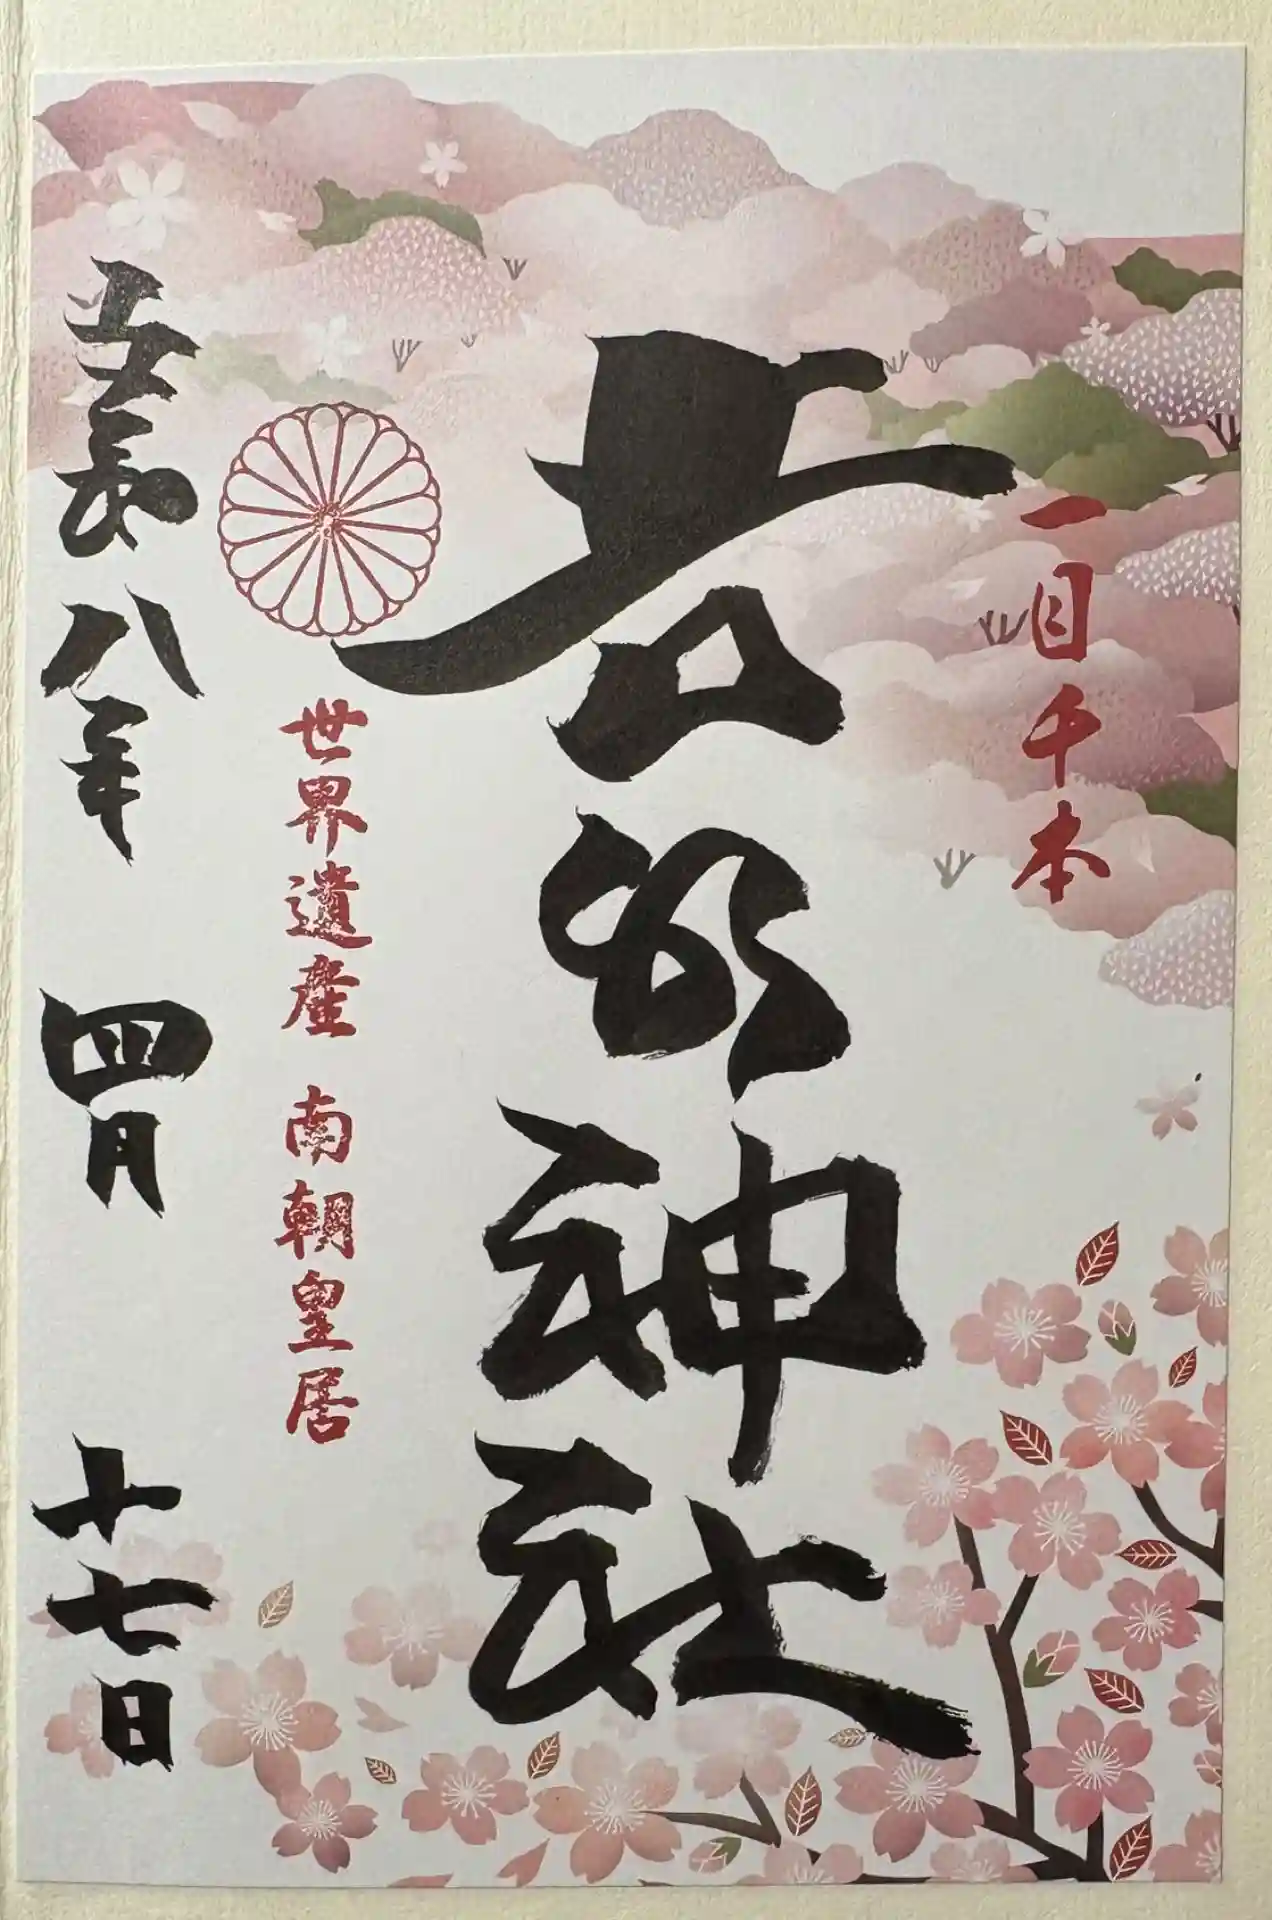 一目千本
吉水神社
世界遺産 南朝皇居
八年 四月 十七日